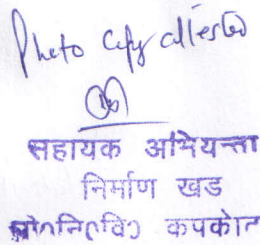 Photo Copy attested
सहायक अभियन्ता
निर्माण खंड
लो०नि०वि० कपकोट